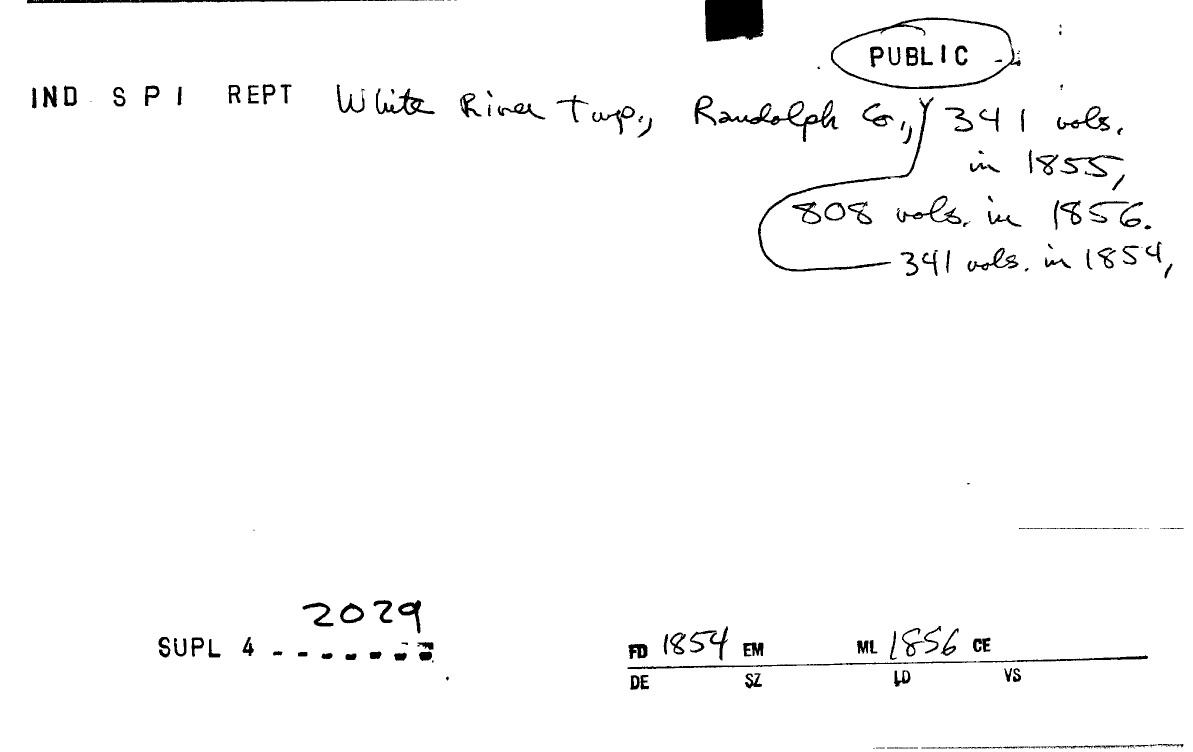 PUBLIC
IND S P I REPT White River Twp., Randolph Co., 341 vols.
in 1855,
808 vols. in 1856.
341 vols. in 1854,
2029
SUPL 4 - - - - - - -
FD 1854 EM ML 1856 CE
DE SZ LD VS